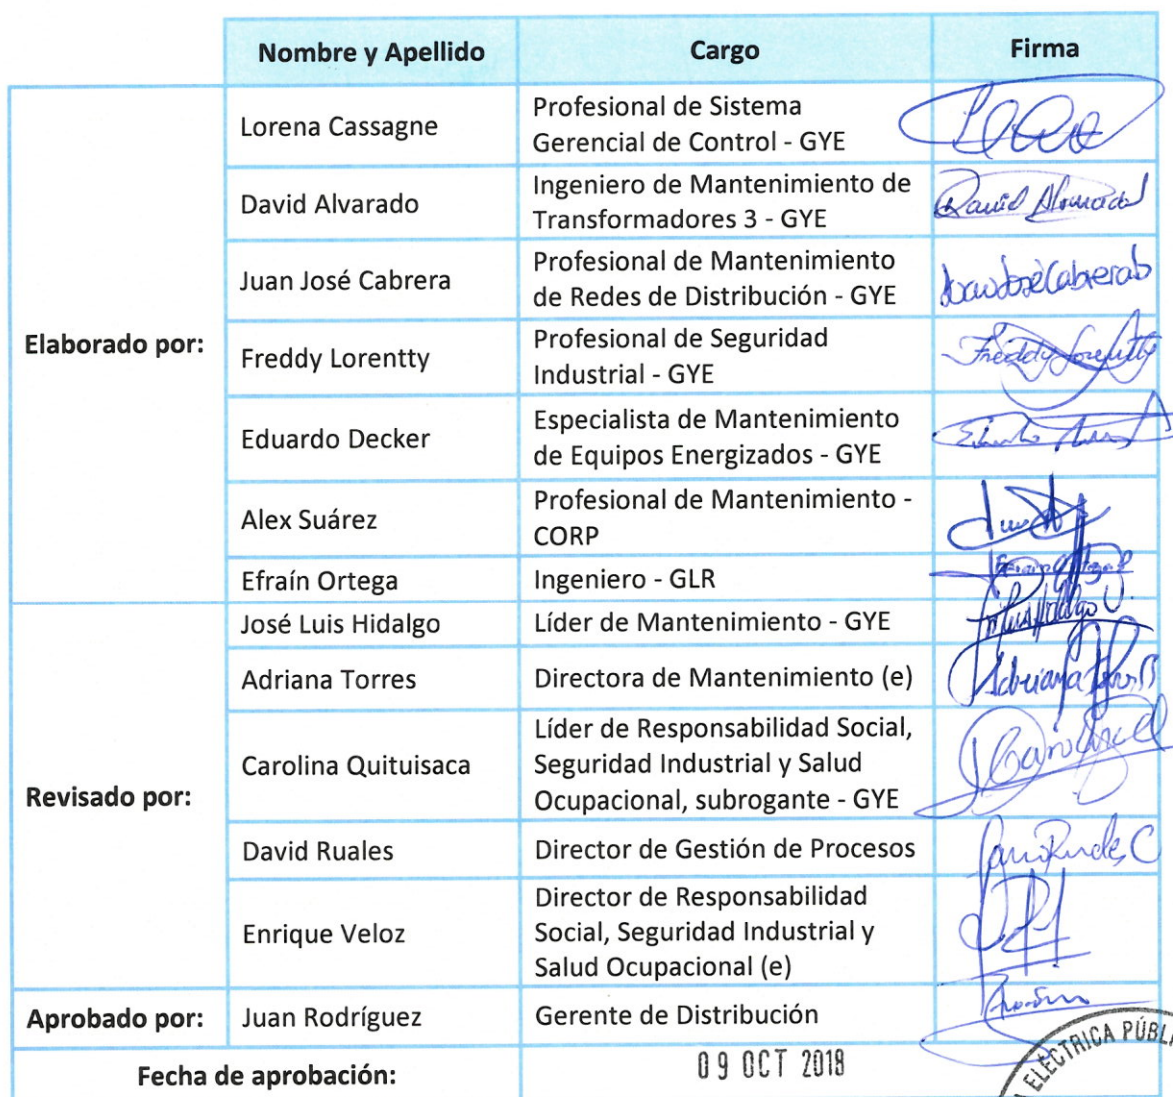 Nombre y Apellido Cargo Firma
Elaborado por:
Lorena Cassagne
Profesional de Sistema
Gerencial de Control - GYE
David Alvarado
Ingeniero de Mantenimiento de
Transformadores 3 - GYE
David Alvarado
Juan José Cabrera
Profesional de Mantenimiento
de Redes de Distribución - GYE
Juan José Cabrera
Freddy Lorentty
Profesional de Seguridad
Industrial - GYE
Freddy Lorentty
Eduardo Decker
Especialista de Mantenimiento
de Equipos Energizados - GYE
Alex Suárez
Profesional de Mantenimiento -
CORP
Efraín Ortega
Ingeniero - GLR
Revisado por:
José Luis Hidalgo
Líder de Mantenimiento - GYE
Adriana Torres
Directora de Mantenimiento (e)
Adriana
Carolina Quituisaca
Líder de Responsabilidad Social,
Seguridad Industrial y Salud
Ocupacional, subrogante - GYE
David Ruales
Director de Gestión de Procesos
Enrique Veloz
Director de Responsabilidad
Social, Seguridad Industrial y
Salud Ocupacional (e)
Aprobado por:
Juan Rodríguez
Gerente de Distribución
Fecha de aprobación:
09 OCT 2018
ELÉCTRICA